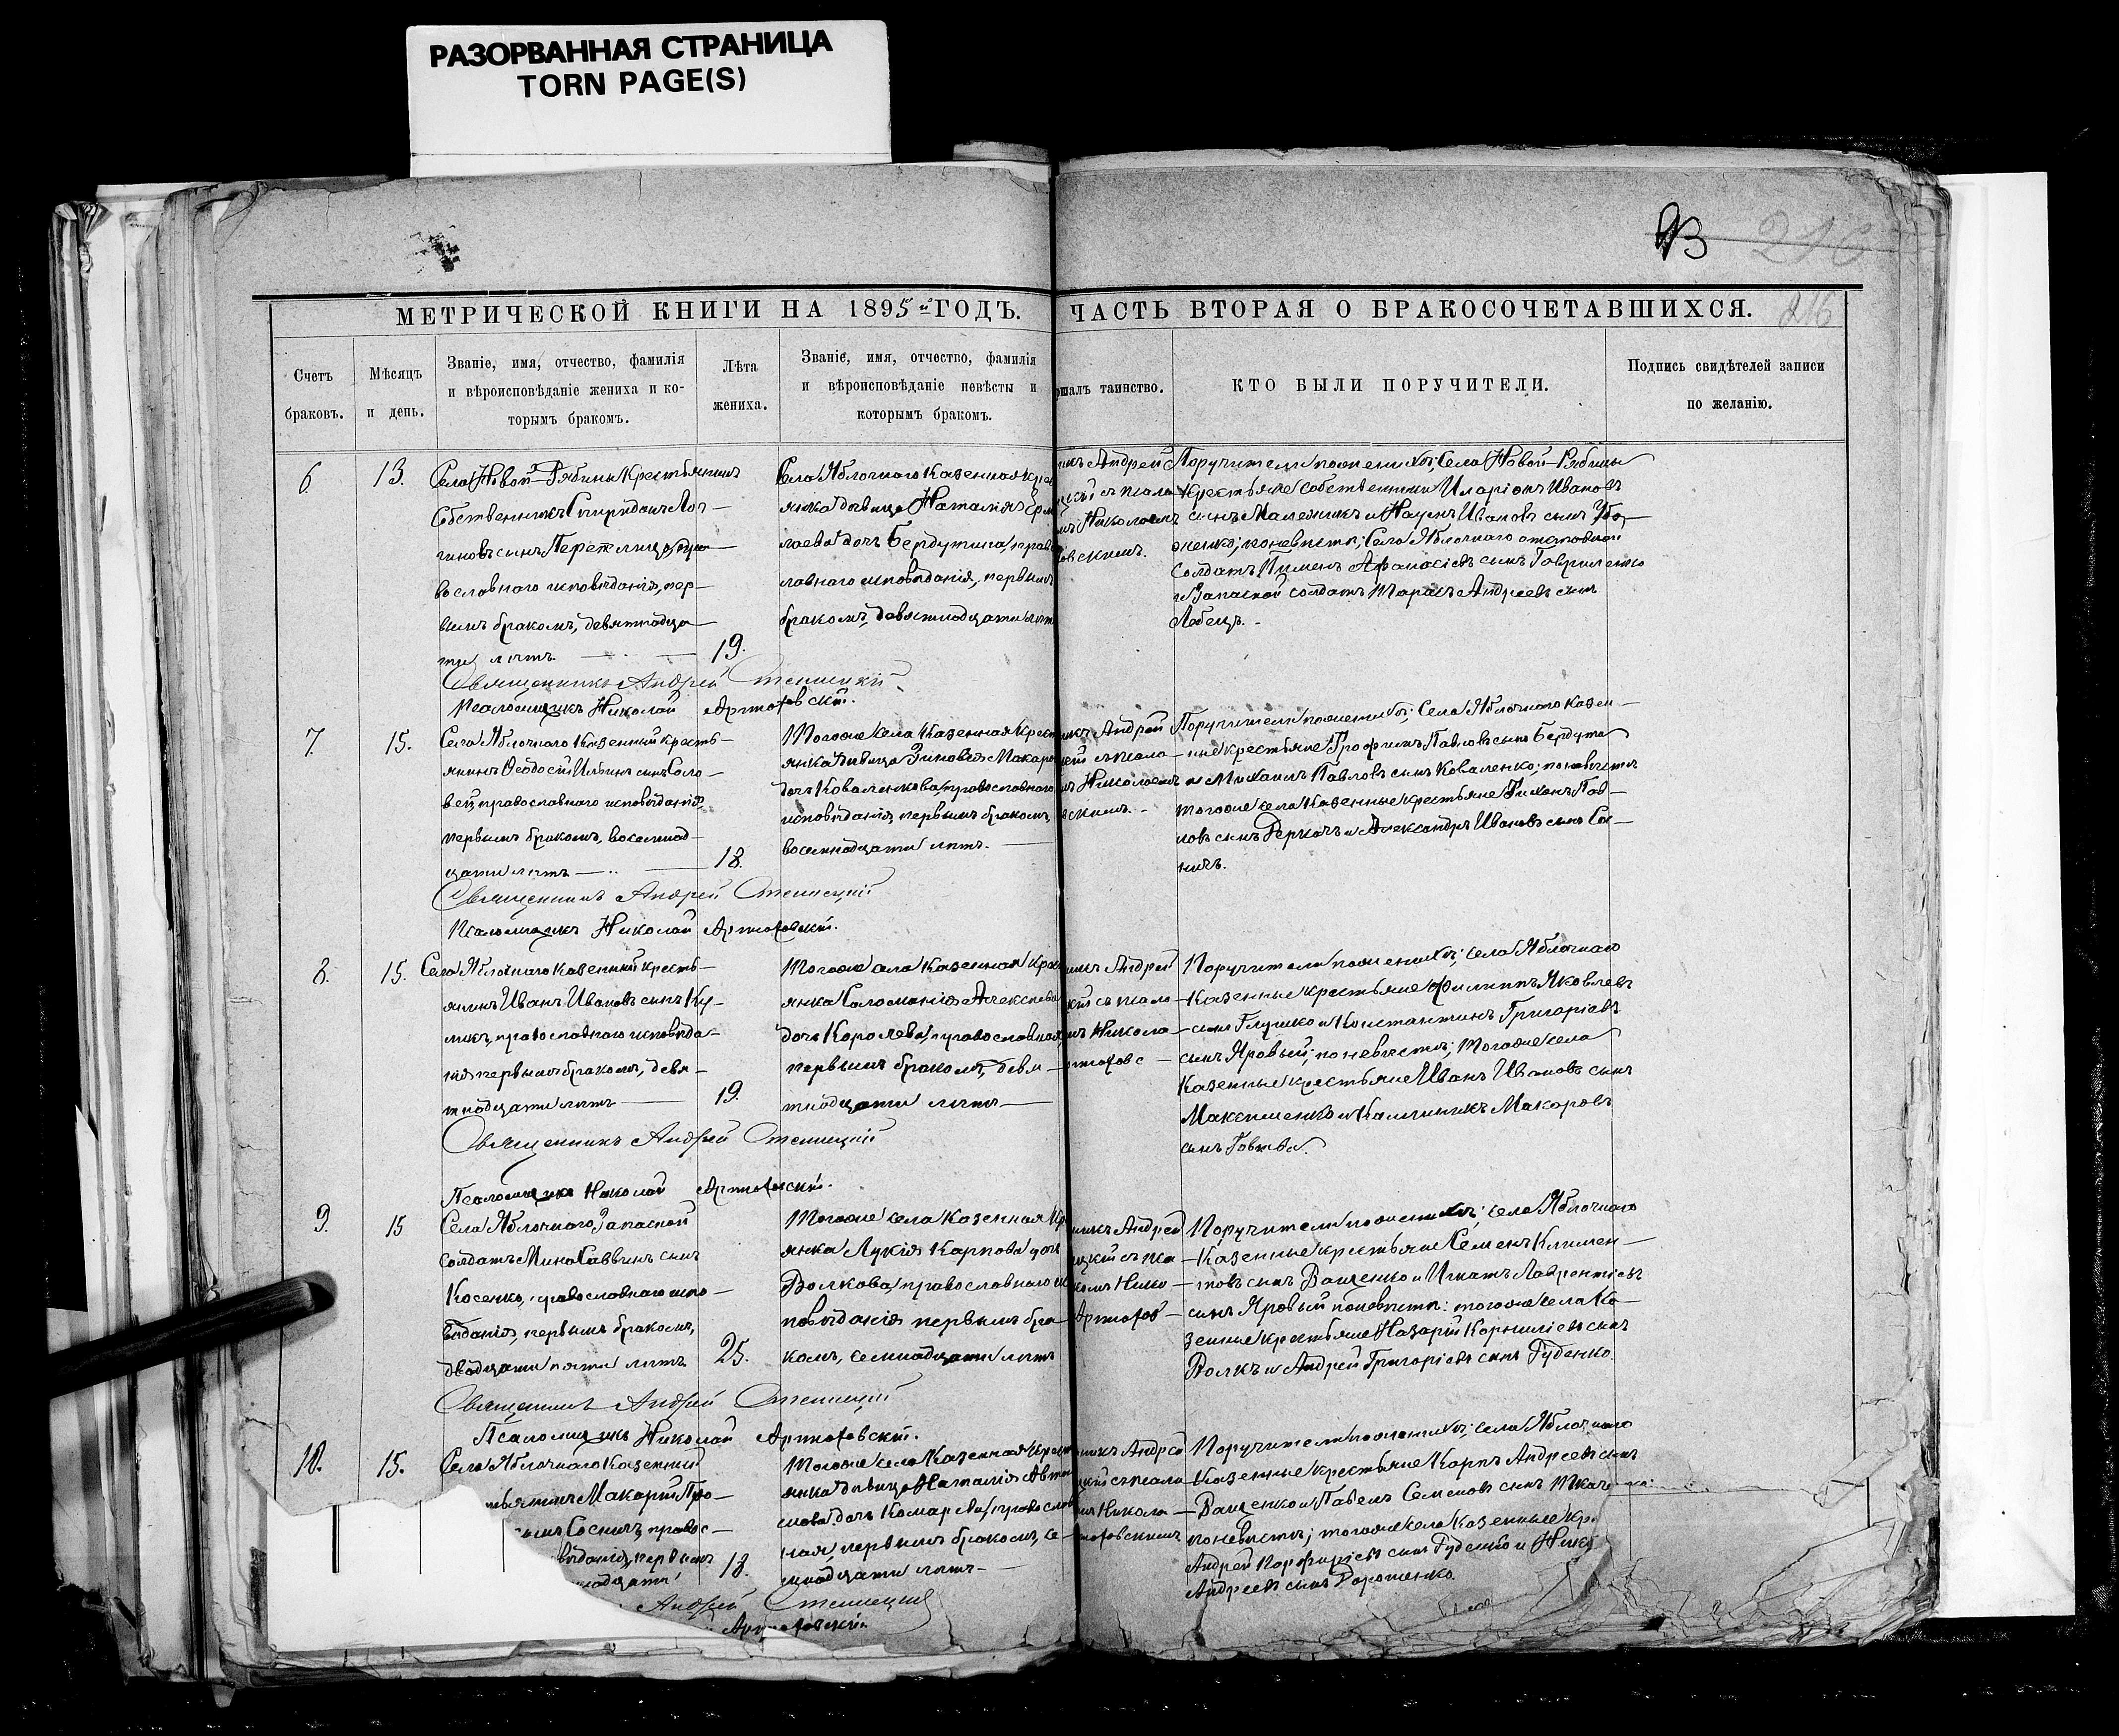 РАЗОРВАННАЯ СТРАНИЦА
TORN PAGE(S)
216
МЕТРИЧЕСКОЙ КНИГИ НА 1895й ГОДЪ.
ЧАСТЬ ВТОРАЯ О БРАКОСОЧЕТАВШИХСЯ. 216
Счетъ
браковъ.
Мѣсяцъ
и день.
Званіе, имя, отчество, фамилія
и вѣроисповѣданіе жениха и ко-
торымъ бракомъ.
Лѣта
жениха.
Званіе, имя, отчество, фамилія
и вѣроисповѣданіе невѣсты и
которымъ бракомъ.
ршалъ таинство.
КТО БЫЛИ ПОРУЧИТЕЛИ.
Подпись свидѣтелей записи
по желанію.
6. 13.
Села Новой-Рябины Крестьянинъ
Собственникъ Спиридонъ Лог-
гиновъ сынъ пра-
вославнаго исповѣданія, пер-
вымъ бракомъ, девятнадца-
ти лѣтъ. 19.
Села Яблочнаго Казенная крес
янка дѣвица Наталія Ерм
лаева дочь Бердутина, правос
лавнаго исповѣданія, первымъ
бракомъ, девятнадцати лѣтъ
икъ Андрей
съ псало
мъ Николаемъ
овскимъ.
Поручители по женихѣ; Села Новой-Рябины
Крестьяне собственники Иларіонъ Ивановъ
сынъ и Наумъ Ивановъ сынъ
по невѣстѣ; Села Яблочнаго отставной
солдатъ Пименъ Афанасіевъ сынъ Гавриленко
и Запасной солдатъ Тарасъ Андреевъ сынъ
Лебець.
Священникъ Андрей
Псаломщикъ Николай Артюховскій.
7. 15.
Села Яблочнаго Казенный кресть-
янинъ Ѳеодосій Ильинъ сынъ Соло-
вей, православнаго исповѣданія,
первымъ бракомъ, восемнад-
цати лѣтъ 18.
Тогоже села Казенная Крест
янка дѣвица Зиновія Макаро
дочь Коваленкова, православнаго
исповѣданія, первымъ бракомъ,
восемнадцати лѣтъ.
икъ Андрей
кій съ псало
мъ Николаемъ
вскимъ.
Поручители по женихѣ; Села Яблочнаго Казен-
ные крестьяне Трофимъ Павловъ сынъ Бердута
и Михаилъ Павловъ сынъ Коваленко; по невѣстѣ
тогоже села Казенные крестьяне Тихонъ Пав-
ловъ сынъ Деркачъ и Александръ Ивановъ сынъ Сос-
ничъ.
Священникъ Андрей
Псаломщикъ Николай Артюховскій.
8. 15.
Села Яблочнаго Казенный кресть-
янинъ Иванъ Ивановъ сынъ Ку-
ликъ, православнаго исповѣда-
нія первымъ бракомъ, девя-
тнадцати лѣтъ 19.
Тогоже села Казенная Крес
янка Соломанія Алексѣева
дочь Королева, православная,
первымъ бракомъ, девя-
тнадцати лѣтъ
икъ Андрей
кій съ псало
мъ Никола
ртюховс
Поручители по женихѣ; села Яблочнаго
Казенные крестьяне Филиппъ Яковлевъ
сынъ Глушко и Константинъ Григоріевъ
сынъ Яровый; по невѣстѣ; тогоже села
Казенные крестьяне Иванъ Ивановъ сынъ
Максименко и Калинникъ Макаровъ
сынъ Говтва.
Священникъ Андрей
Псаломщикъ Николай Артюховскій.
9. 15
Села Яблочнаго, Запасной
солдатъ Мина Саввинъ сынъ
Косенко, православнаго испо-
вѣданія, первымъ бракомъ,
двадцати пяти лѣтъ 25.
Тогоже села Казенная Кр
янка Лукія Карпова дочь
Волкова, православнаго ис
повѣданія первымъ бра-
комъ, семнадцати лѣтъ
никъ Андрей
цкій съ пса
комъ Нико
Артюхов
Поручители по женихѣ; села Яблочнаго
Казенные крестьяне Семенъ Климен-
товъ сынъ Ващенко и Игнатъ Лаврентіевъ
сынъ Яровый по невѣстѣ: тогоже села Ка-
зенные крестьяне Назарій Корниліевъ сынъ
Волкъ и Андрей Григоріевъ сынъ Руденко.
Священникъ Андрей
Псаломщикъ Николай Артюховскій.
10. 15.
Села Яблочнаго Казенный
тьянинъ Макарій Про-
сынъ Сосничъ, правос-
вѣданія, первымъ
надцати 18.
Тогоже села Казенная Крест
янка дѣвица Наталія
мова дочь Комарева, православ
ная, первымъ бракомъ, се-
мнадцати лѣтъ
никъ Андрей
цкій съ псало
мъ Никола
тюховскимъ
Поручители по женихѣ; села Яблочнаго
Казенные крестьяне Карпъ Андреевъ сынъ
Ващенко и Павелъ Семеновъ сынъ
по невѣстѣ; тогоже села Казенные кре
Андрей Порфиріевъ сынъ Руденко и Ник
Андреевъ сынъ Дорошенко.
Андрей
Артюховскій.